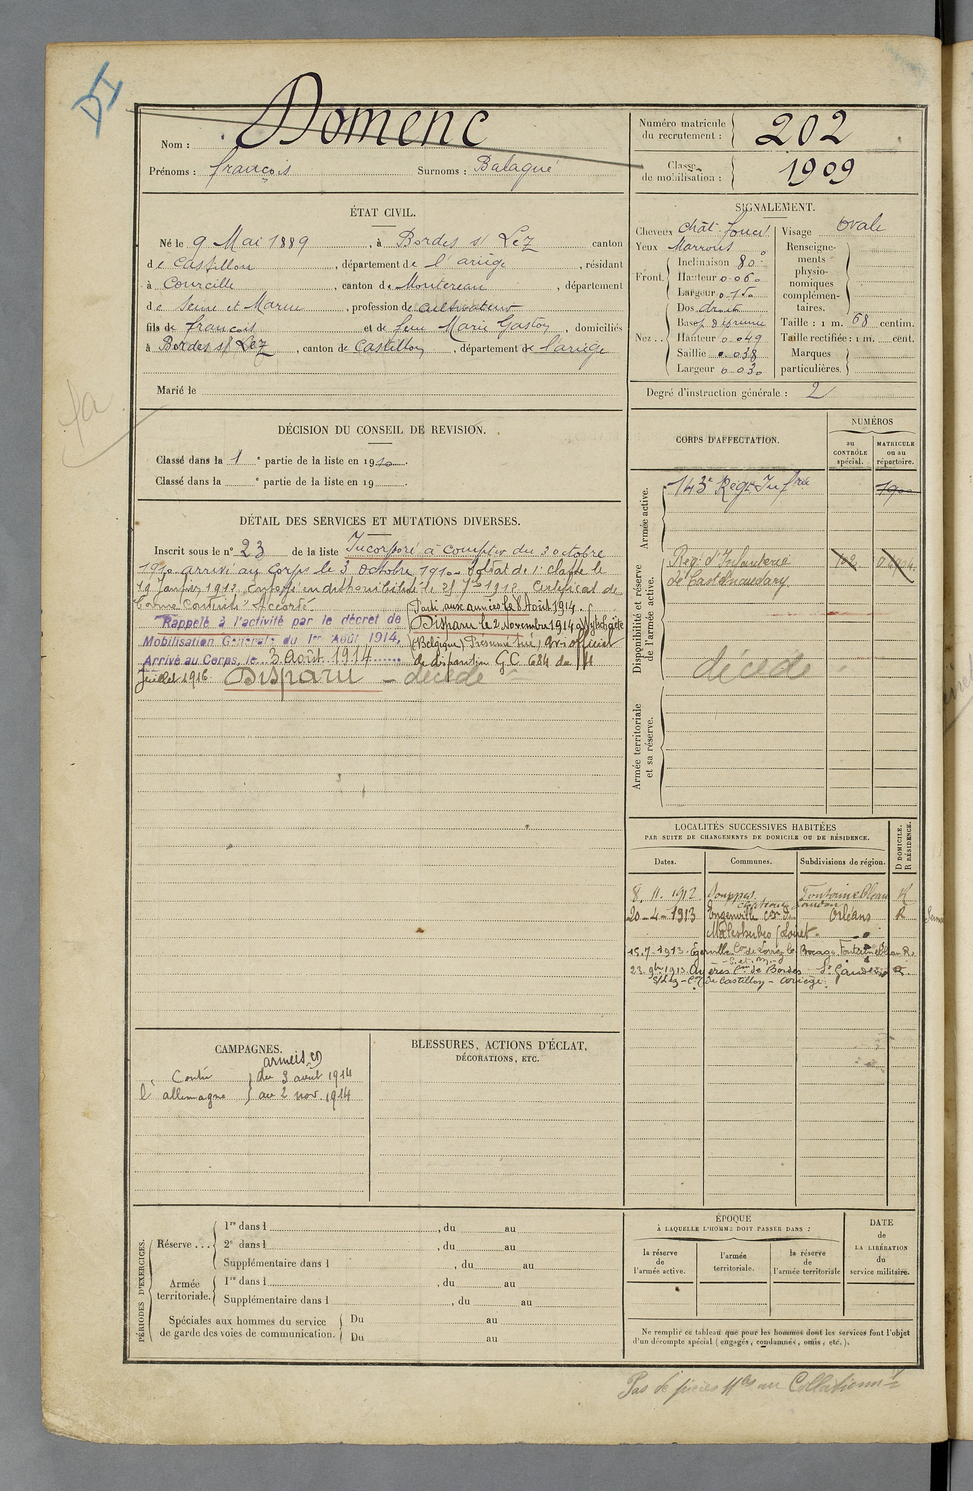 Nom : Domenc
Prénoms : françois Surnoms : Balagué
Numéro matricule du recrutement : 202
Classe de mobilisation : 1909
ÉTAT CIVIL.
Né le 9 Mai 1889, à Bordes s/ Lez canton
de Castillon, département de l'ariège, résidant
à Courcelle, canton de Montereau, département
de Seine et Marne, profession de cultivateur
fils de françois et de feue Marie Gaston, domiciliés
à Bordes s/ Lez, canton de Castillon, département de l'ariège
Marié le
SIGNALEMENT.
Cheveux chât. foncé
Yeux Marrons
Front. Inclinaison
Hauteur
Largeur
Nez .. Dos droit
Base
Hauteur 0.049
Saillie 0.038
Largeur 0.030
Visage ovale
Renseigne-
ments
physio-
nomiques
complémen-
taires.
Taille : 1 m. 68 centim.
Taille rectifiée : 1 m. cent.
Marques
particulières.
Degré d'instruction générale : 2
DÉCISION DU CONSEIL DE REVISION.
Classé dans la 1e partie de la liste en 1910.
Classé dans la e partie de la liste en 19
DÉTAIL DES SERVICES ET MUTATIONS DIVERSES.
Inscrit sous le n° 23 de la liste Incorporé à compter du 3 octobre
1910 arrivé au Corps le 3 octobre 1910. Soldat de 1e Classe le
Certificat de
bonne Conduite Accordé.
Rappelé à l'activité par le décret de
Mobilisation Générale du 1er Août 1914,
Arrivé au Corps, le 3 Août 1914
Parti aux armées le 8 Août 1914.
Disparu le 2 Novembre 1914 à
(Belgique) Présumé tué) Avis officiel
de disparition G.C. 684 du 14
Juillet 1916. Disparu – décédé
CORPS D'AFFECTATION.
NUMÉROS
au CONTRÔLE spécial.
MATRICULE ou au répertoire.
Armée active.
143e Rég. Inf rie
Disponibilité et réserve de l'armée active.
Reg. d'Infanterie
de Castelnaudary
décédé
Armée territoriale et sa réserve.
LOCALITÉS SUCCESSIVES HABITÉES
PAR SUITE DE CHANGEMENTS DE DOMICILE OU DE RÉSIDENCE.
Dates. Communes. Subdivisions de région. D DOMICILE. R RÉSIDENCE.
8. 11. 1912 Souppes Fontainebleau R
20 – 4 – 1913 Orléans R
Malesherbes (Loiret
15.7.1913
23. 9bre 1913 St Gaudens R.
Castillon – Ariège.
CAMPAGNES.
Contre l'allemagne
armées
du 3 août 1914
au 2 nov. 1914
BLESSURES, ACTIONS D'ÉCLAT,
DÉCORATIONS, ETC.
PÉRIODES D'EXERCICES.
Réserve ... 1re dans l , du au
2e dans l , du au
Supplémentaire dans l , du au
Armée territoriale. 1re dans l , du au
Supplémentaire dans l , du au
Spéciales aux hommes du service
de garde des voies de communication.
Du au
Du au
ÉPOQUE
À LAQUELLE L'HOMME DOIT PASSER DANS :
la réserve de l'armée active.
l'armée territoriale.
la réserve de l'armée territoriale
DATE
de
LA LIBÉRATION
du
service militaire.
Ne remplir ce tableau que pour les hommes dont les services font l'objet
d'un décompte spécial (engagés, condamnés, omis, etc.).